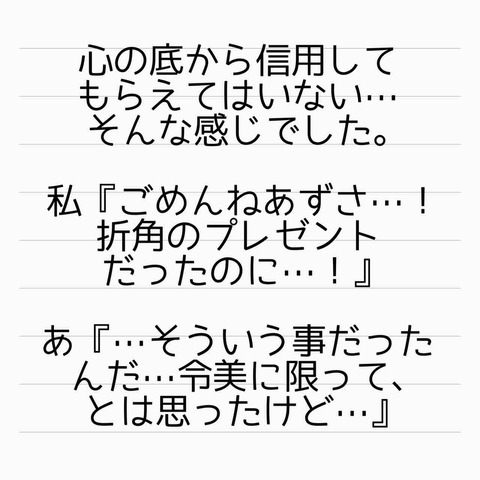 心の底から信用して
もらえてはいない…
そんな感じでした。
私『ごめんねあずさ…！
折角のプレゼント
だったのに…！』
あ『…そういう事だった
んだ…令美に限って、
とは思ったけど…』